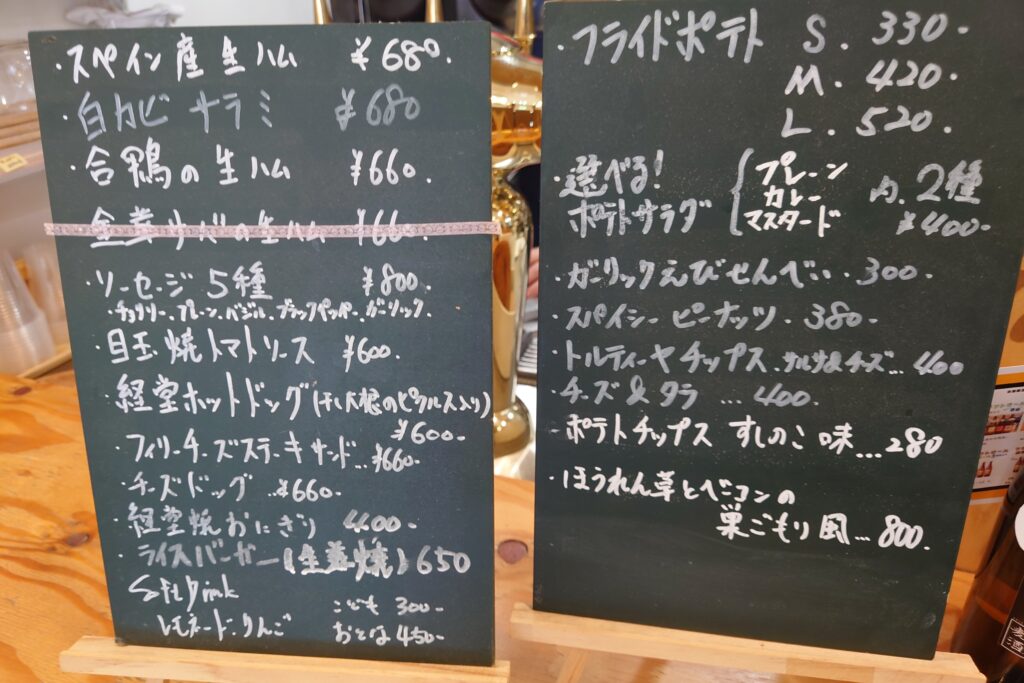 ・スペイン産生ハム ¥680.
白カビサラミ ¥680
・合鴨の生ハム ¥660.
金華サバの生ハム ¥660.
・ソーセージ5種 ¥800.
・チョリソー、プレーン、バジル、ブラックペッパー、ガーリック
・目玉焼トマトソース ¥600.
・経堂ホットドッグ(干し大根のピクルス入り)
¥600-
・フィリーチーズステーキサンド...¥660-
・チーズドッグ...¥660-
・経堂焼おにぎり 400-
・ライスバーガー(生姜焼)650
Soft Drink
レモネード.りんご こども 300-
おとな 450-
・フライドポテト S. 330-
M. 420-
L. 520.
・選べる!
ポテトサラダ
プレーン
カレー
マスタード
内.2種
¥400-
・ガーリックえびせんべい.300-
・スパイシーピーナッツ.380-
・トルティーヤチップス.サルサ&チーズ...400
・チーズ&タラ ...400.
・ポテトチップス すしのこ味...280
・ほうれん草とベーコンの
巣ごもり風...800.